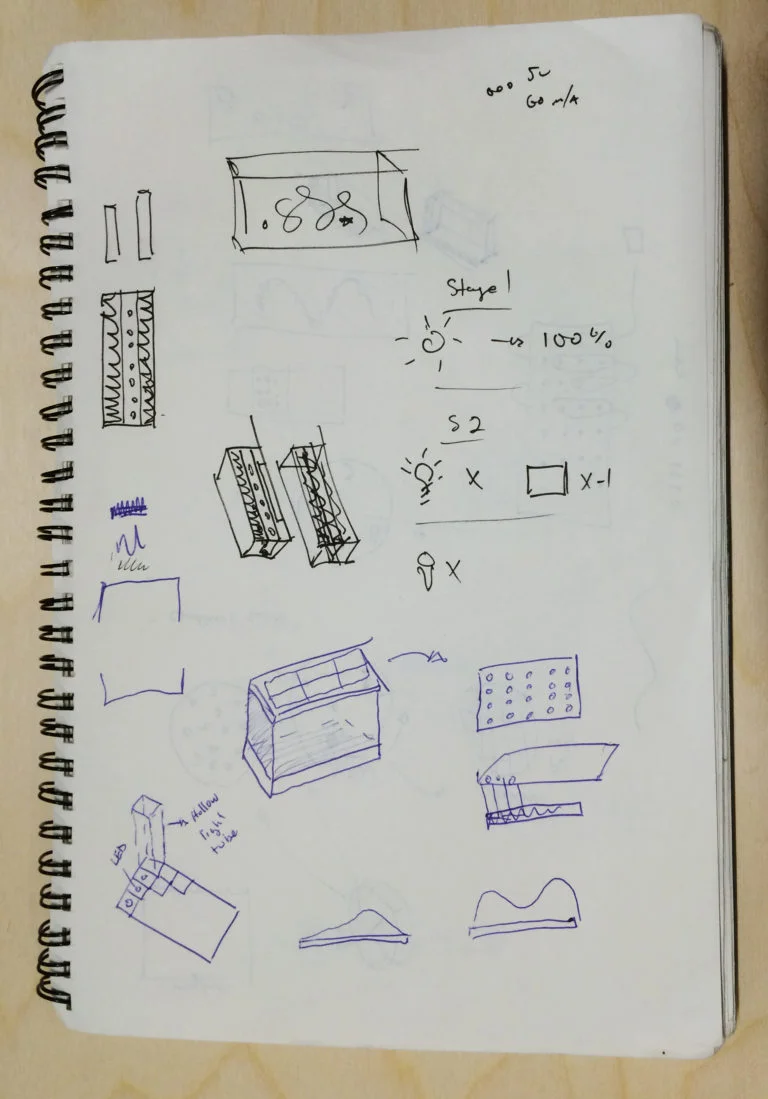 5v
60 m/A
Stage 1
→ 100%
S2
X
X-1
X
LED
→ Hollow
light
tube